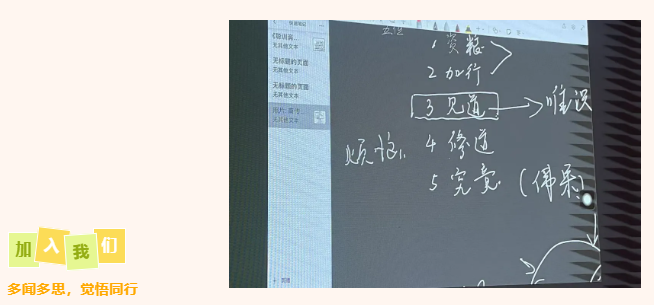 无其他文本
无标题的页面
无其他文本
无标题的页面
无其他文本
无其他文本
1 资粮
2 加行
3 见道 → 唯识
烦恼 4 修道
5 究竟 (佛果)
加入我们
多闻多思，觉悟同行